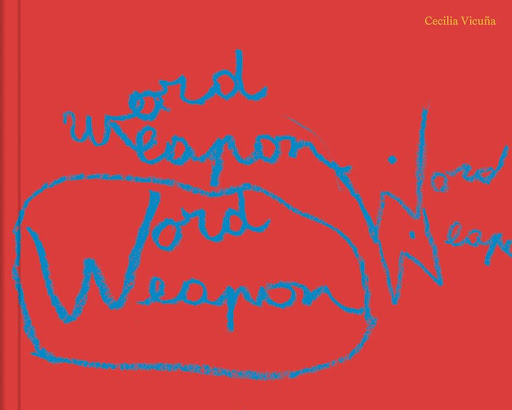 Cecilia Vicuña
word
weapon
Word
Weapon
Word
Weapo